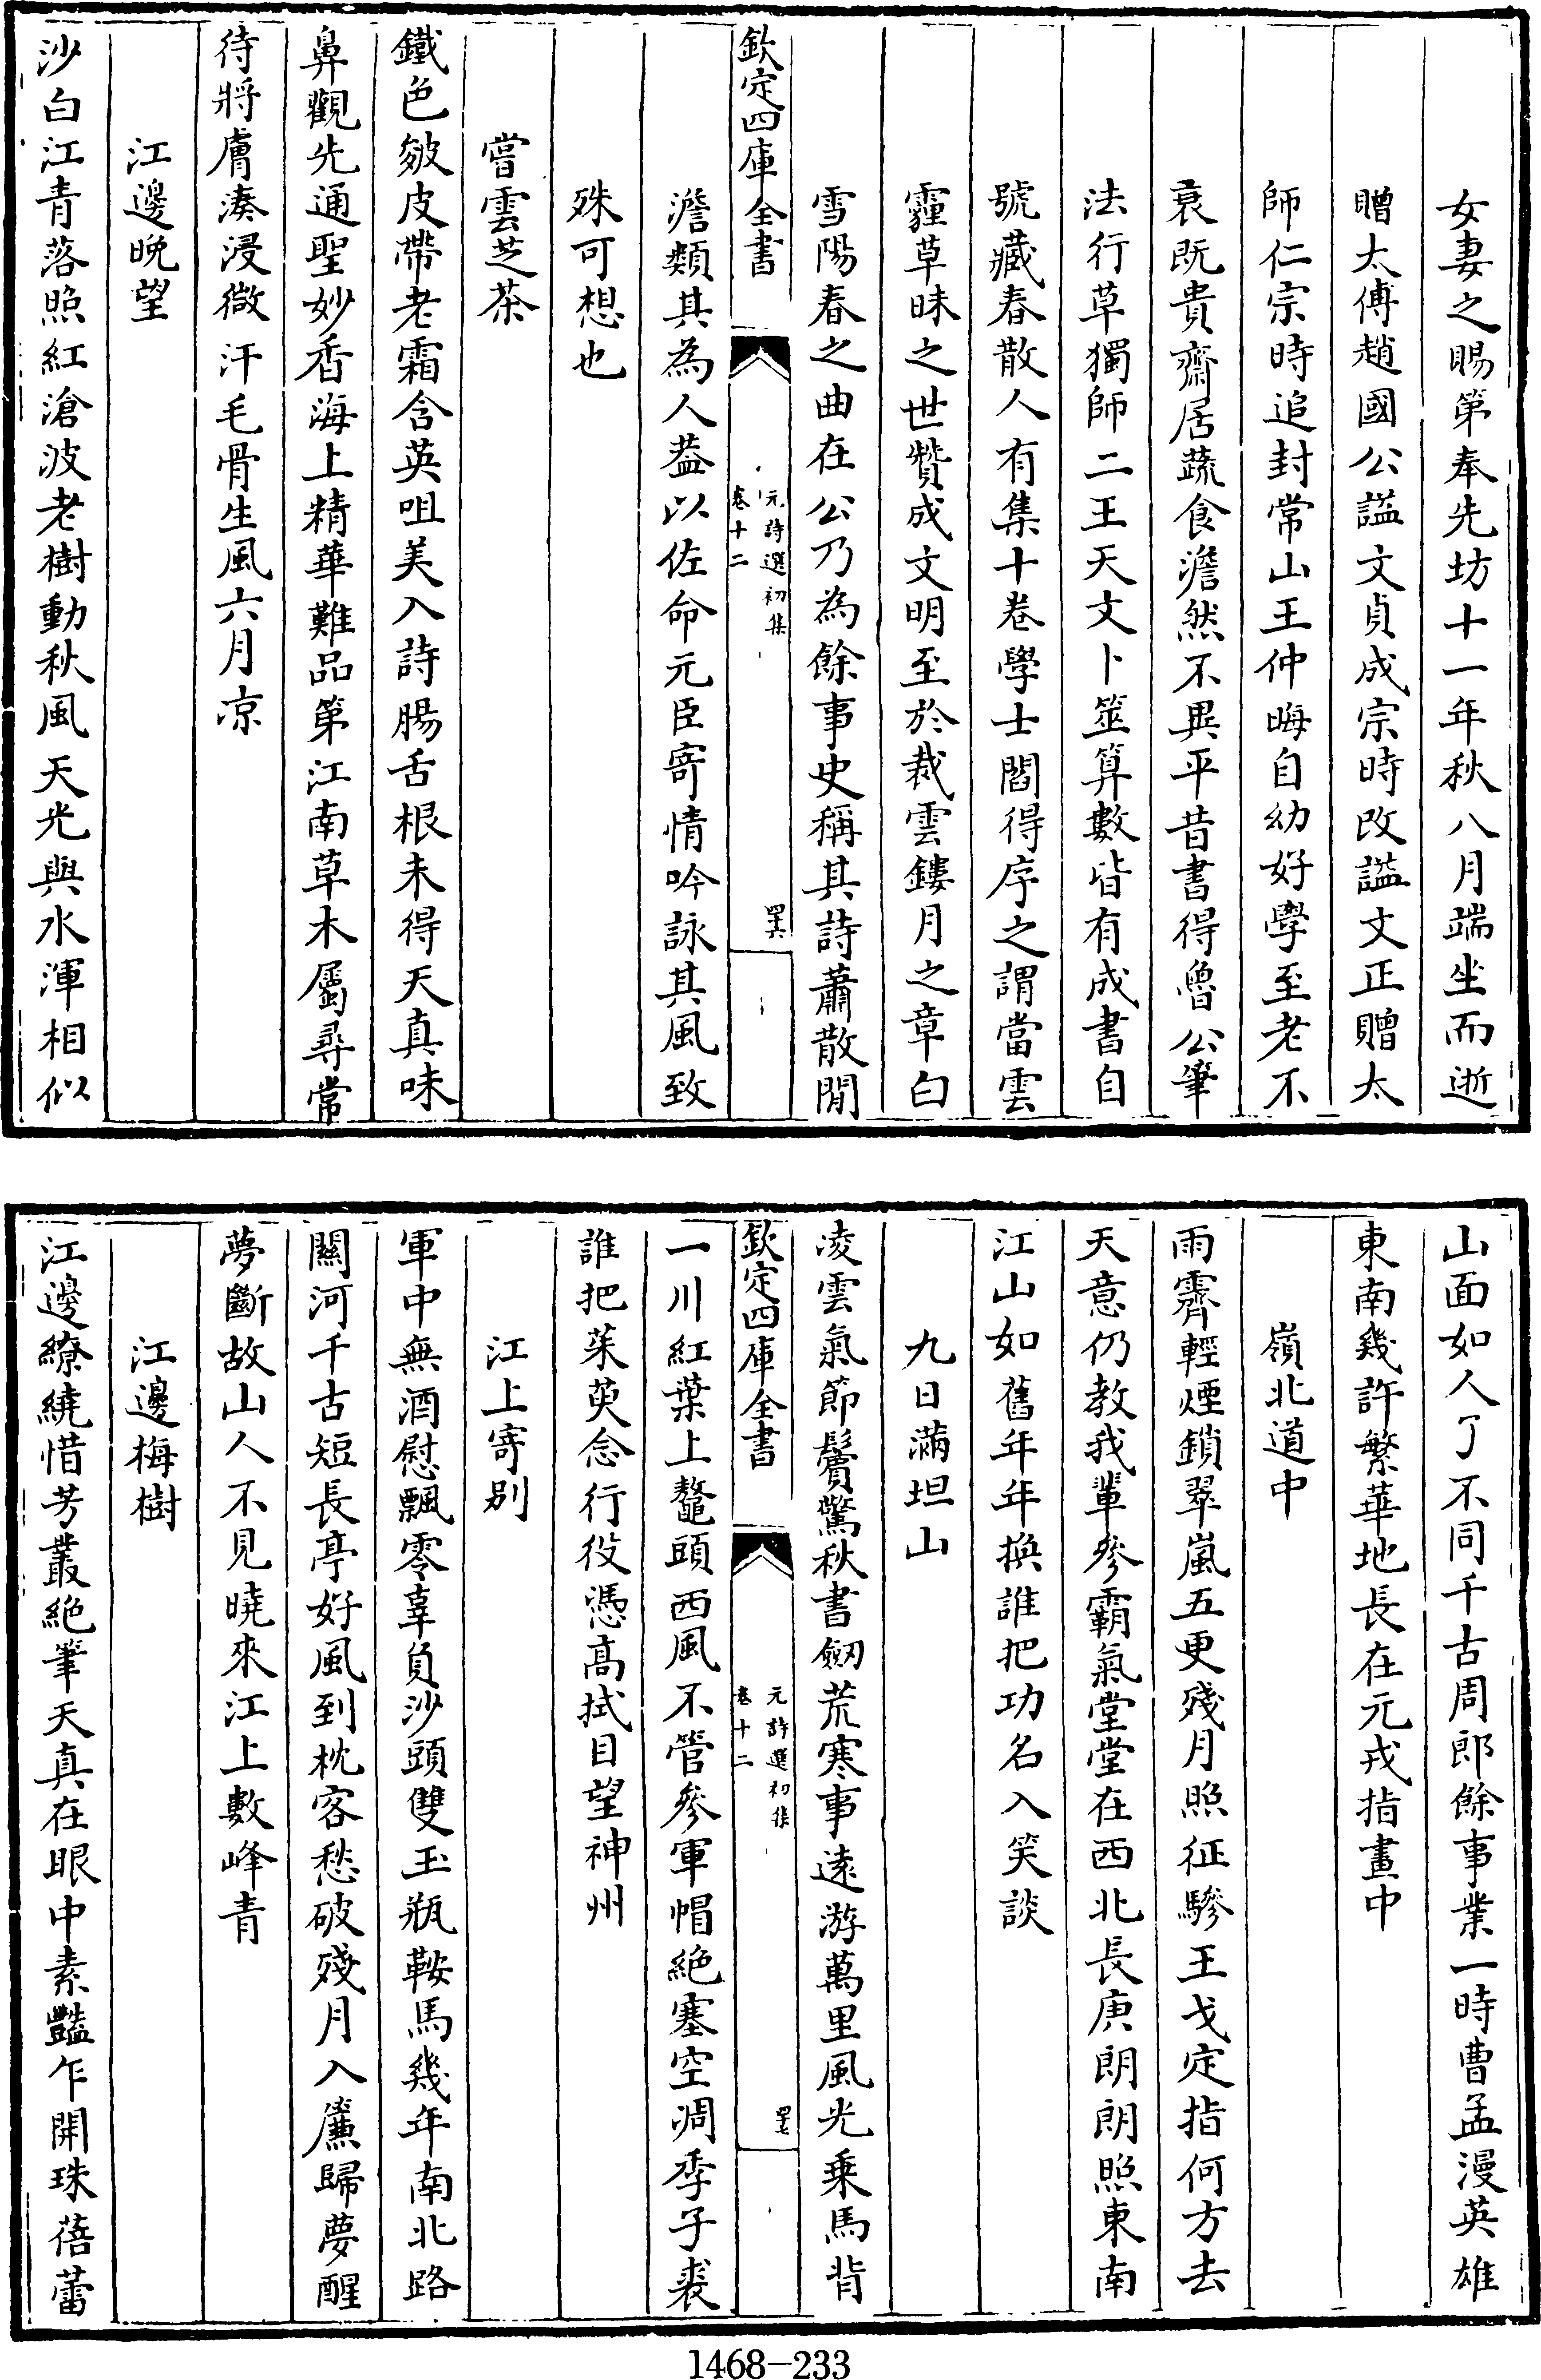 女妻之賜第奉先坊十一年秋八月端坐而逝
贈太傅趙國公謚文貞成宗時改謚文正贈太
師仁宗時追封常山王仲晦自幼好學至老不
衰既貴齋居蔬食澹然不異平昔書得魯公筆
法行草獨師二王天文卜筮算數皆有成書自
號藏春散人有集十卷學士閻得序之謂當雲
霾草昧之世贊成文明至於裁雲鏤月之章白
雪陽春之曲在公乃為餘事史稱其詩蕭散閒
欽定四庫全書
元詩選初集
卷十二
四十六
澹類其為人葢以佐命元臣寄情吟詠其風致
殊可想也
嘗雲芝茶
鐵色皴皮帶老霜含英咀美入詩腸舌根未得天真味
鼻觀先通聖妙香海上精華難品第江南草木屬尋常
待將膚湊浸微汗毛骨生風六月凉
江邊晚望
沙白江青落照紅滄波老樹動秋風天光與水渾相似
山面如人了不同千古周郎餘事業一時曹孟漫英雄
東南幾許繁華地長在元戎指畫中
嶺北道中
雨霽輕煙鎖翠嵐五更殘月照征驂王戈定指何方去
天意仍教我輩參霸氣堂堂在西北長庚朗朗照東南
江山如舊年年換誰把功名入笑談
九日滿坦山
凌雲氣節鬢驚秋書劒荒寒事遠游萬里風光乗馬背
欽定四庫全書
元詩選初集
卷十二
四十七
一川紅葉上鼇頭西風不管參軍帽絶塞空凋季子裘
誰把茱萸念行役憑高拭目望神州
江上寄别
軍中無酒慰飄零辜負沙頭雙玉瓶鞍馬幾年南北路
關河千古短長亭好風到枕客愁破殘月入簾歸夢醒
夢斷故山人不見曉來江上數峰青
江邊梅樹
江邊繚繞惜芳叢絶筆天真在眼中素豔乍開珠蓓蕾
1468-233